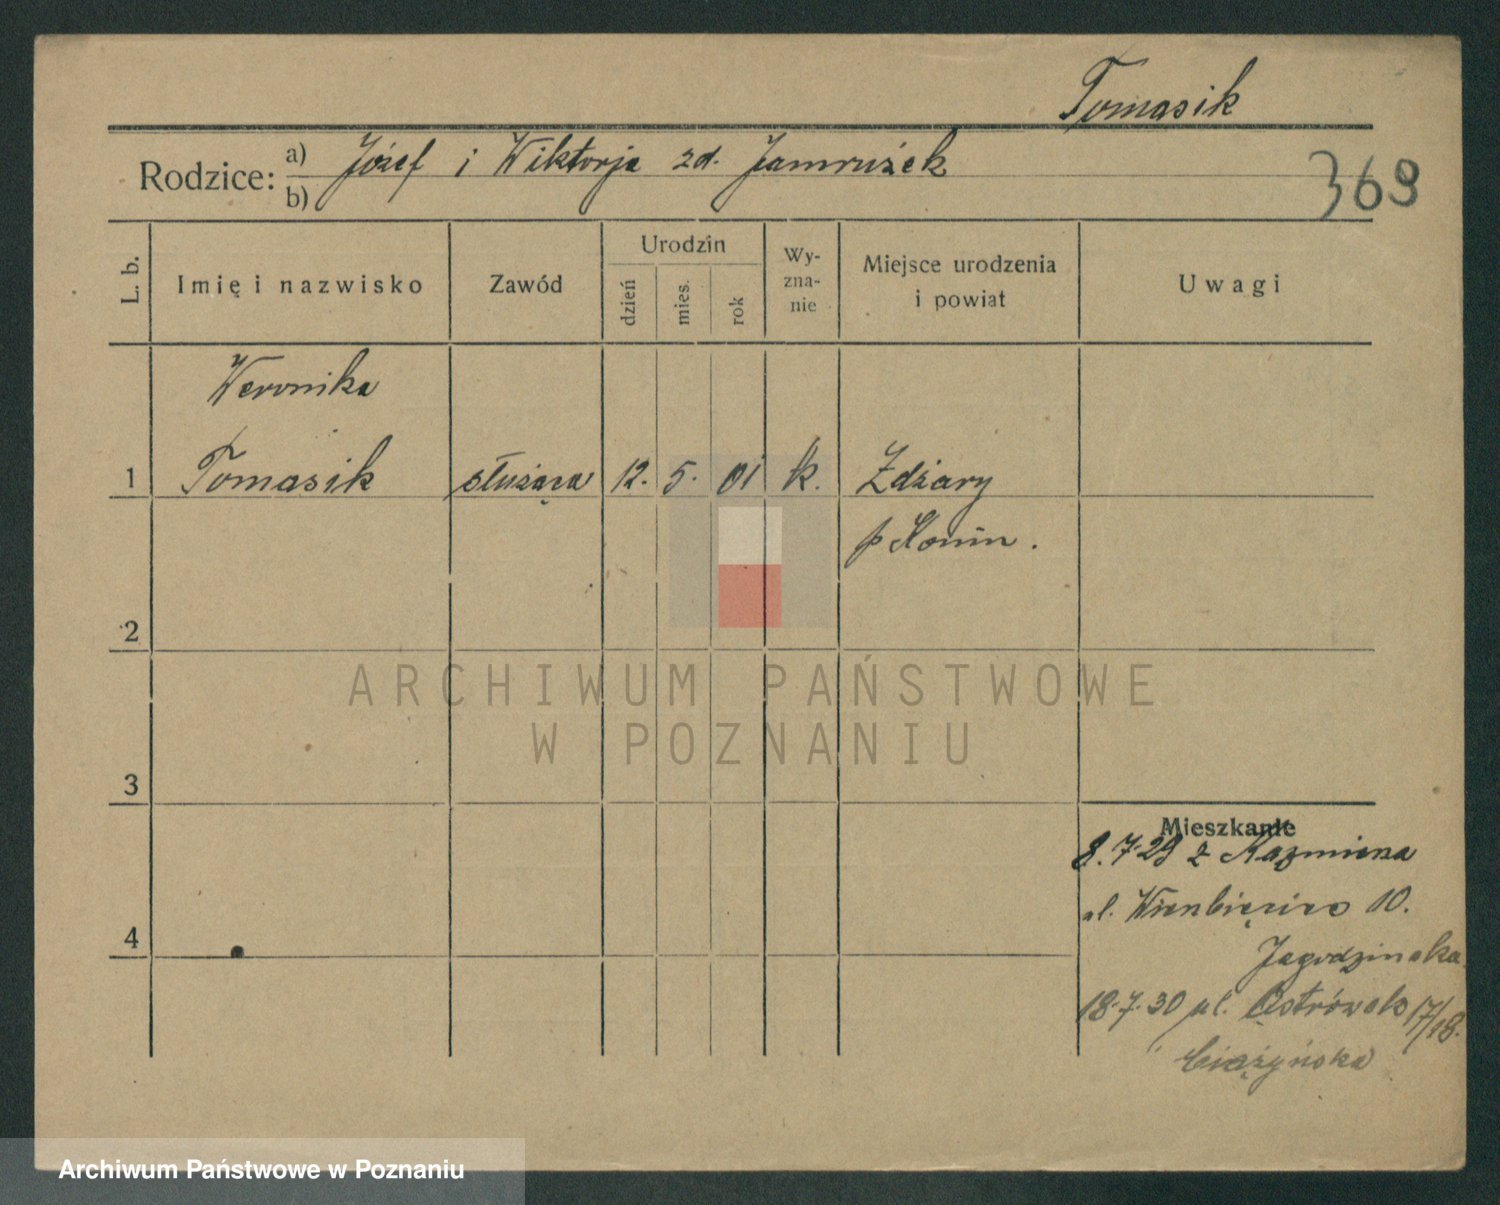 Tomasik
Rodzice: a) Józef i Wiktorja zd. Jamrużek
b)
369
L. b.
Imię i nazwisko
Zawód
Urodzin
dzień
mies.
rok
Wy-
zna-
nie
Miejsce urodzenia
i powiat
Uwagi
Weronika
1 Tomasik służąca 12. 5. 01 k. Zdżary
p Konin.
2
ARCHIWUM PAŃSTWOWE
W POZNANIU
3
Mieszkanie
8.7.29 z Kazmierza
ul. 10.
Jagodzinska
18.7.30 ul. Ostrówek 17/18.
Ciążyńska
4
Archiwum Państwowe w Poznaniu